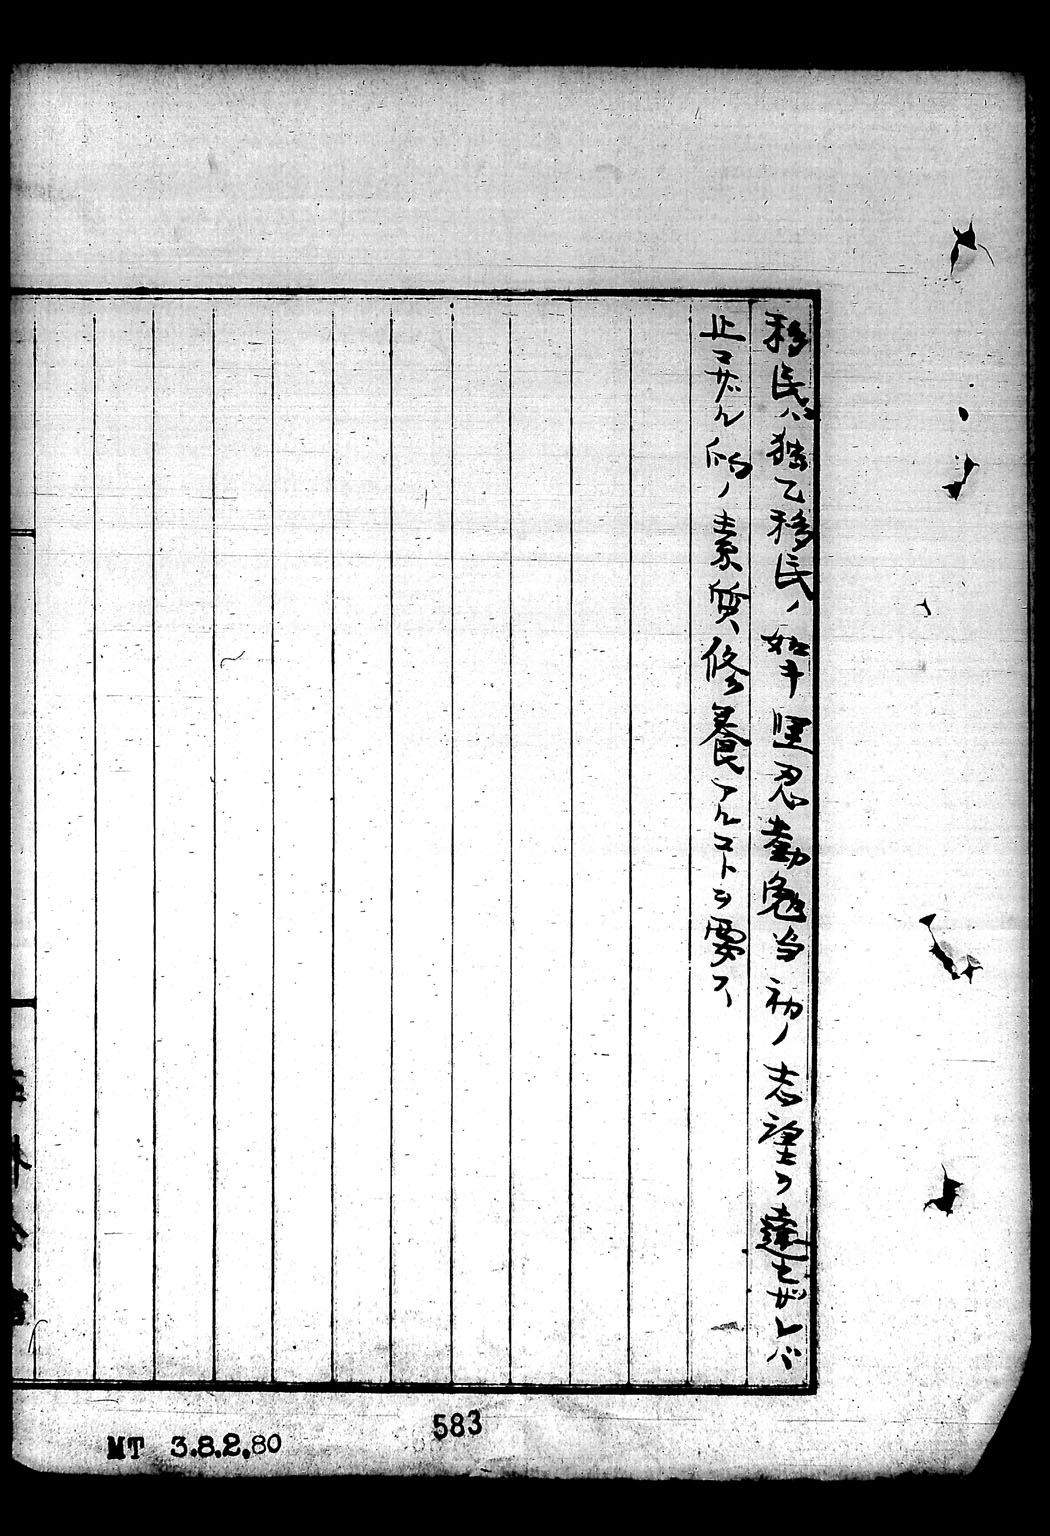 移民ハ独乙移民ノ如キ堅忍勤勉当初ノ志望ヲ達セザレバ
止マザル的ノ素質修養アルコトヲ要ス
583
MT 3.8.2.80